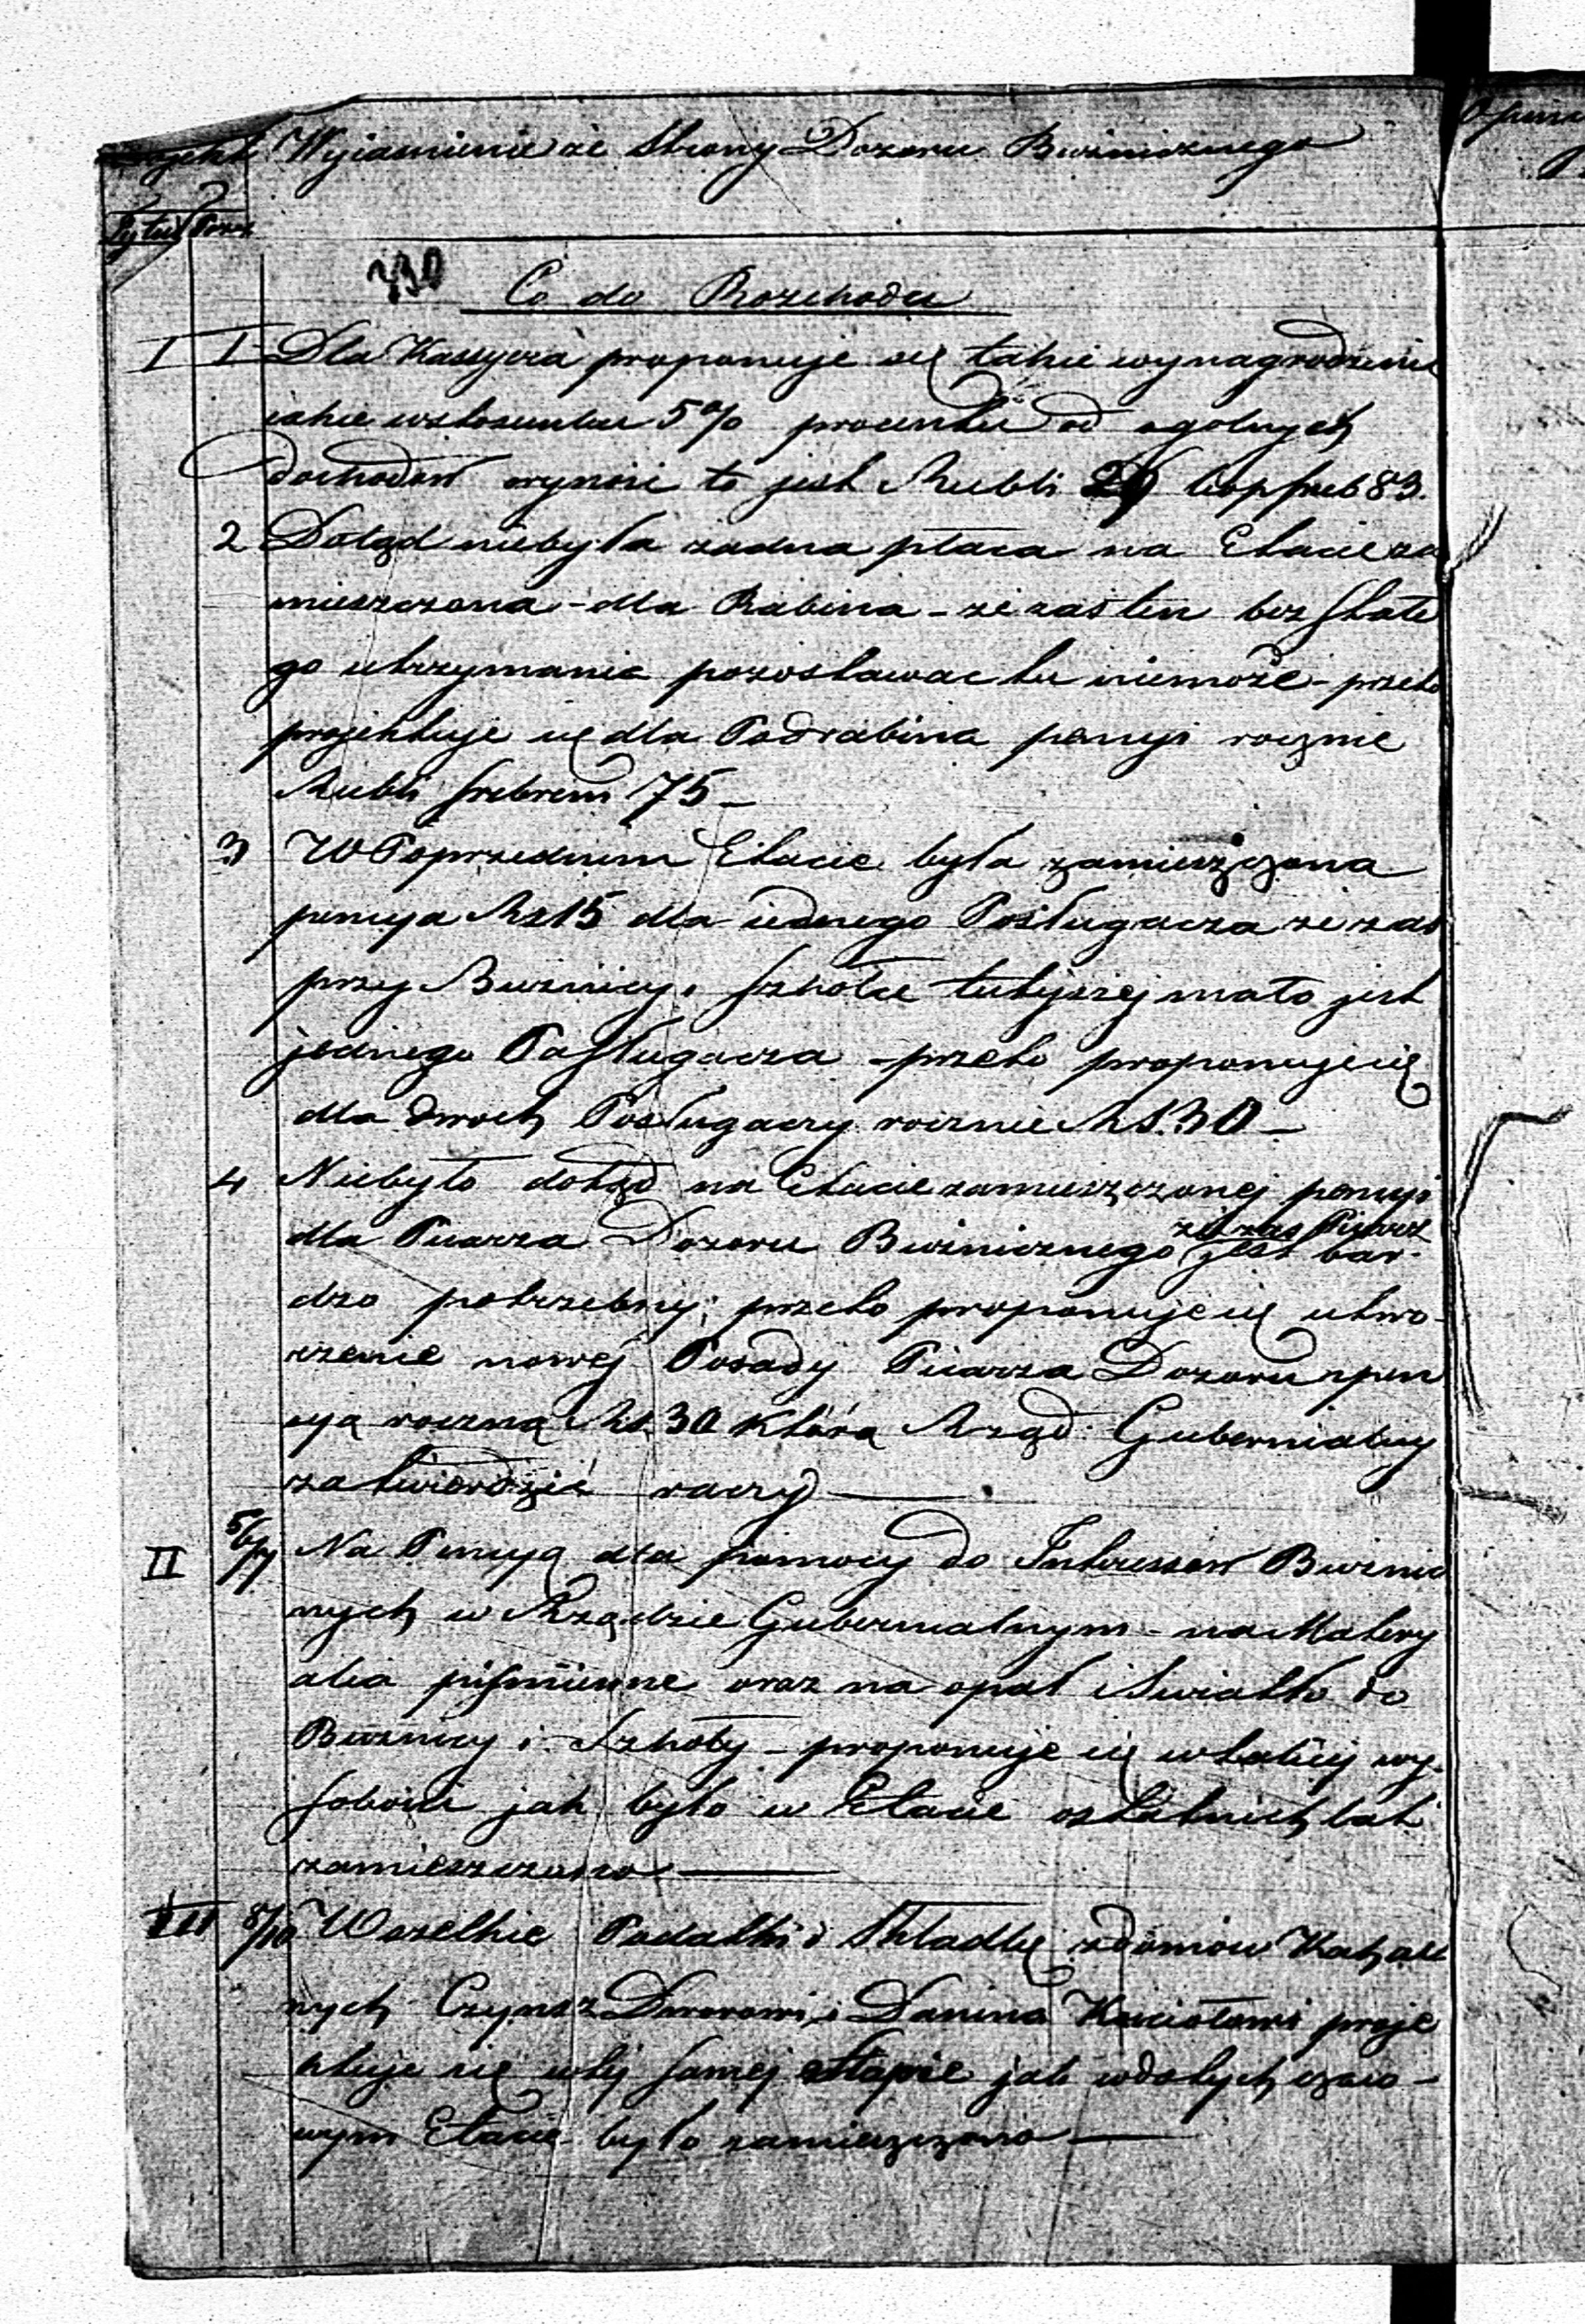 Wyiasnienie ze Strony Dozoru Buznicznego
Tytuł Poz
330
Co do Rozchodu
I 1 Dla Kassyera proponuje się takie wynagrodzenie
iakie wstosunku 5% procentu od ogolnych
dochodow wynosi to jest Rubli kop sreb 83.
2 Dotąd niebyła żadna płaca na Etacie za
mieszczona - dla Rabina - że zaś ten bez stałe
go utrzymania pozostawac tu niemoże - przeto
projektuje się dla Podrabina pensyi rocznie
Rubli srebrem 75 -
3 W Poprzednim Etacie była zamieszczona
pensya Rs 15 dla iednego Posługacza że zaś
przy Buznicy i szkole tutejszej mało jest
jednego Posługacza - przeto proponuje się
dla dwoch Posługaczy rocznie RS. 30 -
4 Niebyło dotąd na Etacie zamieszczonej pensyi
że zas Pisarz
dla Pisarza Dozoru Buznicznego jest bar-
dzo potrzebny; przeto proponuje się utwo-
rzenie nowej Posady Pisarza Dozoru z pen
syą roczną Rs. 30 którą Rząd Gubernialny
zatwierdzić raczy
II 5/6/7 Na Pensyą dla pomocy do Interessow Buznic
nych w Rządzie Gubernialnym - na Matery
alia piśmienne oraz na opał i Swiatło do
Buznicy i Szkoły - proponuje się w takiej wy-
sokości jak było w Etacie ostatnich lat
zamieszczono
III 8/10 Wszelkie Podatki i Składkę z domow Kahal
nych Czynsz Dworowi i Danina Kościołowi proje
ktuje się w tej samej etapie jak w dotychczaso-
wym Etacie było zamieszczono